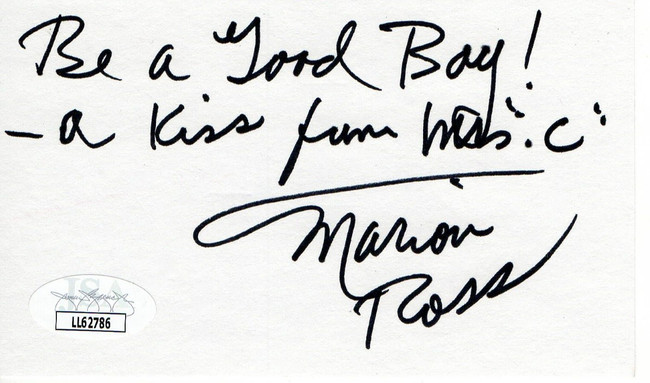 Be a Good Boy!
- a Kiss from Mrs. "C"
Marion
Ross
JSA
LL62786